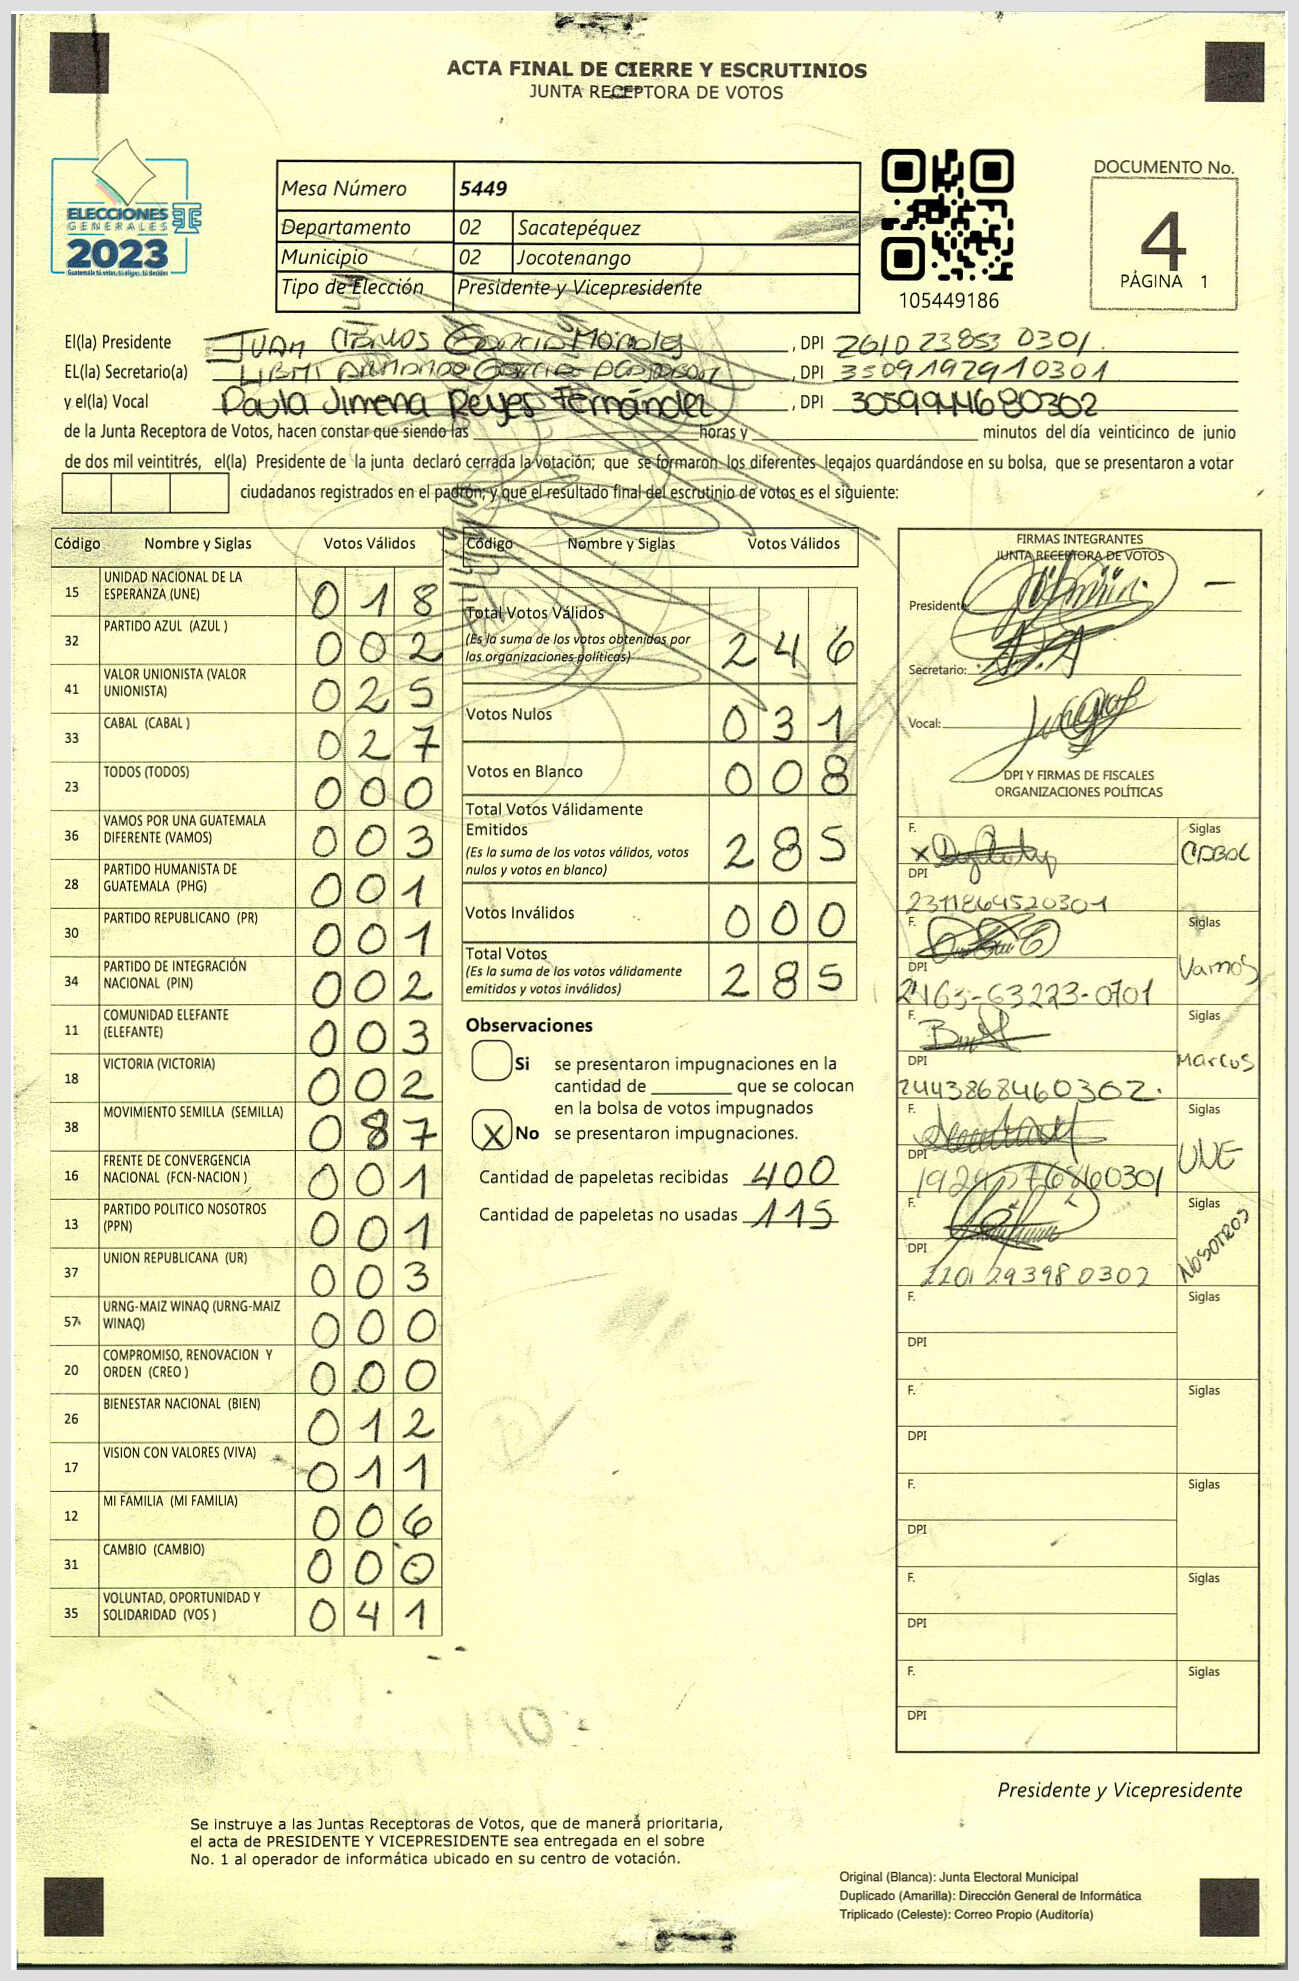 ACTA FINAL DE CIERRE Y ESCRUTINIOS
JUNTA RECEPTORA DE VOTOS
ELECCIONES
GENERALES
2023
Mesa Número 5449
Departamento 02 Sacatepéquez
Municipio 02 Jocotenango
Tipo de Elección Presidente y Vicepresidente
105449186
DOCUMENTO No.
4
PÁGINA 1
El(la) Presidente Juan Carlos García Morales, DPI 2610 23853 0301
EL(la) Secretario(a), DPI 3509192910301
y el(la) Vocal Paula Jimena Reyes Fernández, DPI 3059944680302
de la Junta Receptora de Votos, hacen constar que siendo las horas y minutos del día veinticinco de junio
de dos mil veintitrés, el(la) Presidente de la junta declaró cerrada la votación; que se formaron los diferentes legajos guardándose en su bolsa, que se presentaron a votar
ciudadanos registrados en el padrón; y que el resultado final del escrutinio de votos es el siguiente:
Código Nombre y Siglas Votos Válidos
15 UNIDAD NACIONAL DE LA ESPERANZA (UNE) 018
32 PARTIDO AZUL (AZUL ) 002
41 VALOR UNIONISTA (VALOR UNIONISTA) 025
33 CABAL (CABAL ) 027
23 TODOS (TODOS) 000
36 VAMOS POR UNA GUATEMALA DIFERENTE (VAMOS) 003
28 PARTIDO HUMANISTA DE GUATEMALA (PHG) 001
30 PARTIDO REPUBLICANO (PR) 001
34 PARTIDO DE INTEGRACIÓN NACIONAL (PIN) 002
11 COMUNIDAD ELEFANTE (ELEFANTE) 003
18 VICTORIA (VICTORIA) 002
38 MOVIMIENTO SEMILLA (SEMILLA) 087
16 FRENTE DE CONVERGENCIA NACIONAL (FCN-NACION ) 001
13 PARTIDO POLITICO NOSOTROS (PPN) 001
37 UNION REPUBLICANA (UR) 003
57 URNG-MAIZ WINAQ (URNG-MAIZ WINAQ) 000
20 COMPROMISO, RENOVACION Y ORDEN (CREO ) 000
26 BIENESTAR NACIONAL (BIEN) 012
17 VISION CON VALORES (VIVA) 011
12 MI FAMILIA (MI FAMILIA) 006
31 CAMBIO (CAMBIO) 000
35 VOLUNTAD, OPORTUNIDAD Y SOLIDARIDAD (VOS ) 041
Código Nombre y Siglas Votos Válidos
Total Votos Válidos 246
(Es la suma de los votos obtenidos por
las organizaciones políticas)
Votos Nulos 031
Votos en Blanco 008
Total Votos Válidamente
Emitidos 285
(Es la suma de los votos válidos, votos
nulos y votos en blanco)
Votos Inválidos 000
Total Votos 285
(Es la suma de los votos válidamente
emitidos y votos inválidos)
Observaciones
Si se presentaron impugnaciones en la
cantidad de que se colocan
en la bolsa de votos impugnados
X No se presentaron impugnaciones.
Cantidad de papeletas recibidas 400
Cantidad de papeletas no usadas 115
FIRMAS INTEGRANTES
JUNTA RECEPTORA DE VOTOS
Presidente:
Secretario:
Vocal:
DPI Y FIRMAS DE FISCALES
ORGANIZACIONES POLÍTICAS
F. X Siglas CABAL
DPI 2371864520301
F. Siglas Vamos
DPI 2163-63223-0701
F. Siglas Marcos
DPI 2443868460302.
F. Siglas UNE
DPI
F. Siglas NOSOTROS
DPI 2201293980302
F. Siglas
DPI
F. Siglas
DPI
F. Siglas
DPI
F. Siglas
DPI
F. Siglas
DPI
Presidente y Vicepresidente
Se instruye a las Juntas Receptoras de Votos, que de manera prioritaria,
el acta de PRESIDENTE Y VICEPRESIDENTE sea entregada en el sobre
No. 1 al operador de informática ubicado en su centro de votación.
Original (Blanca): Junta Electoral Municipal
Duplicado (Amarilla): Dirección General de Informática
Triplicado (Celeste): Correo Propio (Auditoría)